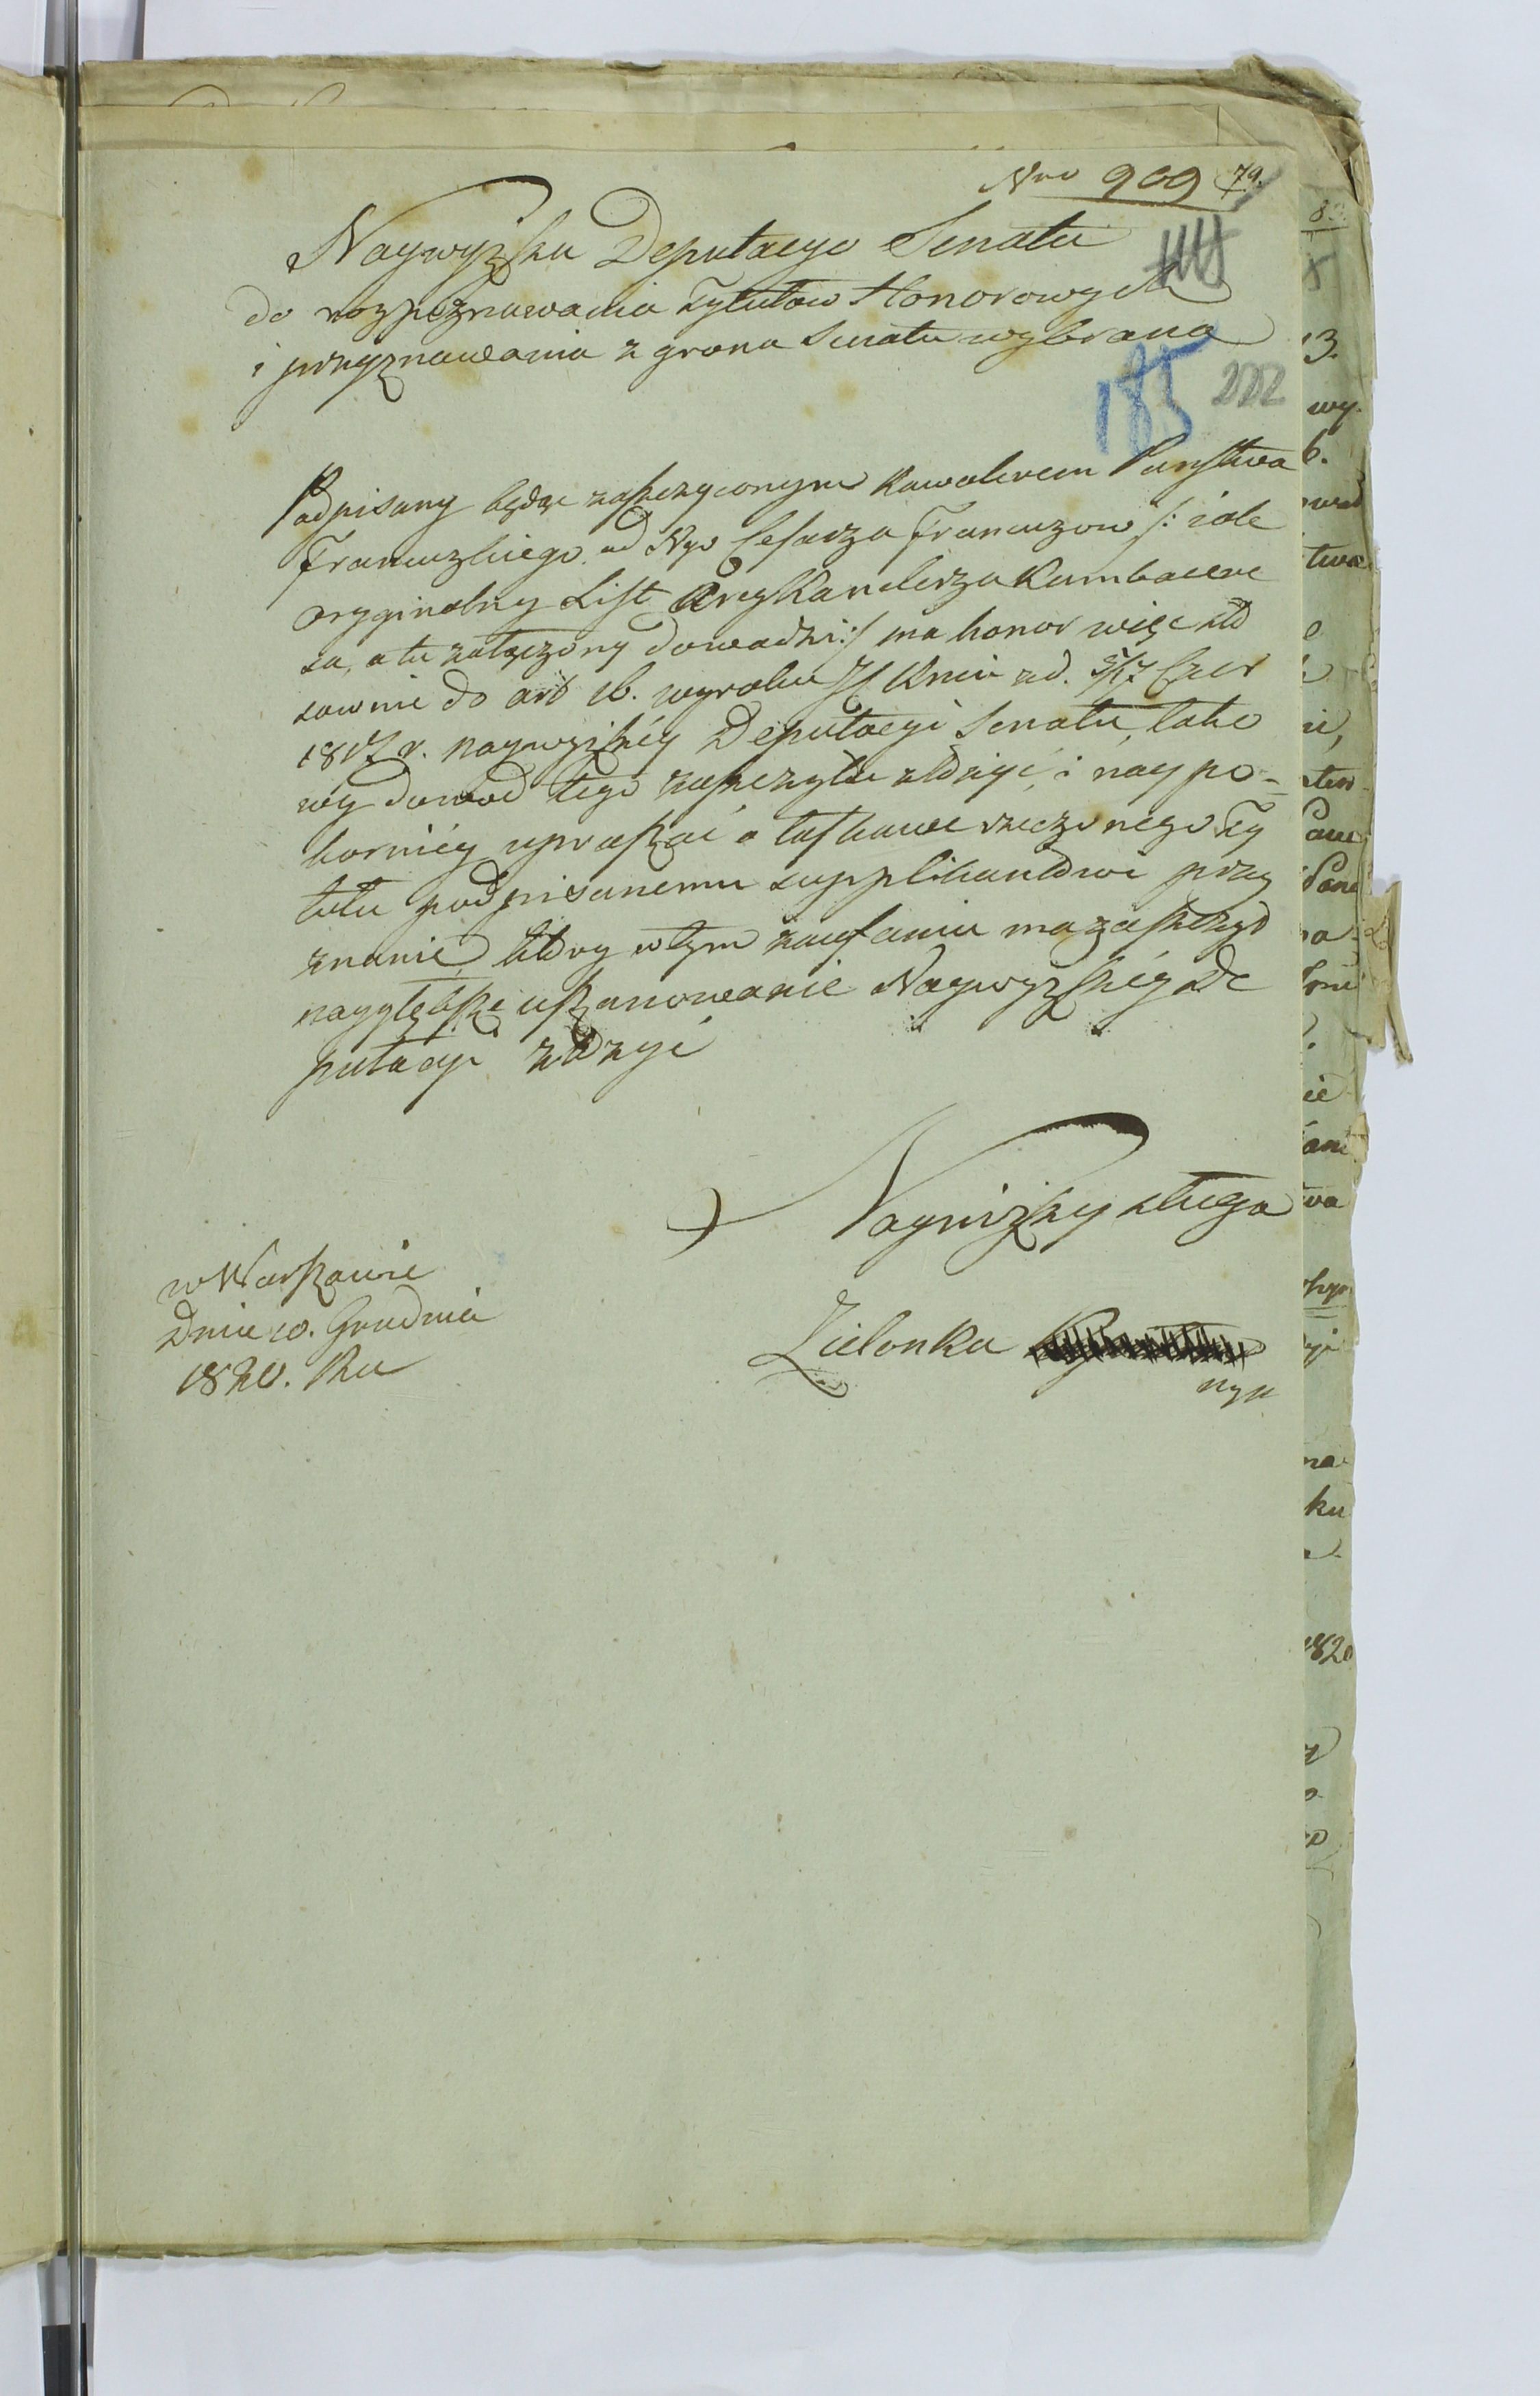 Nro 909 79.
Naywyższa Deputacyo Senatu
do rozpoznawania Tytułow Honorowych
i przyznawania z grona Senatu wybrana
185 222
Podpisany będąc zaszczyconym Kawalerem Państwa
Francuzkiego od Nyo Cesarza Francuzow /: iak
oryginalny List Arcy Kanclerza Kambacere
sa, a tu załączony dowodzi :/ ma honor więc sto
sownie do art 16. wyroku Kwia z d. 5/17 Czer
1817 r. naywyższéy Deputacyi Senatu, tako
wy dowod tego zaszczytu złożyć, i naypo-
korniéy upraszać o łaskawe rzeczonego Ty
tułu podpisanemu supplikantowi przy
znanie, który w tym zaufaniu ma zaszczyt
naygłębsze uszanowanie Naywyższéy De
putacyi złożyć
Nayniższy sługa
w Warszawie
Dnia 10. Grudnia
1820. Ru
Zielonka
mp